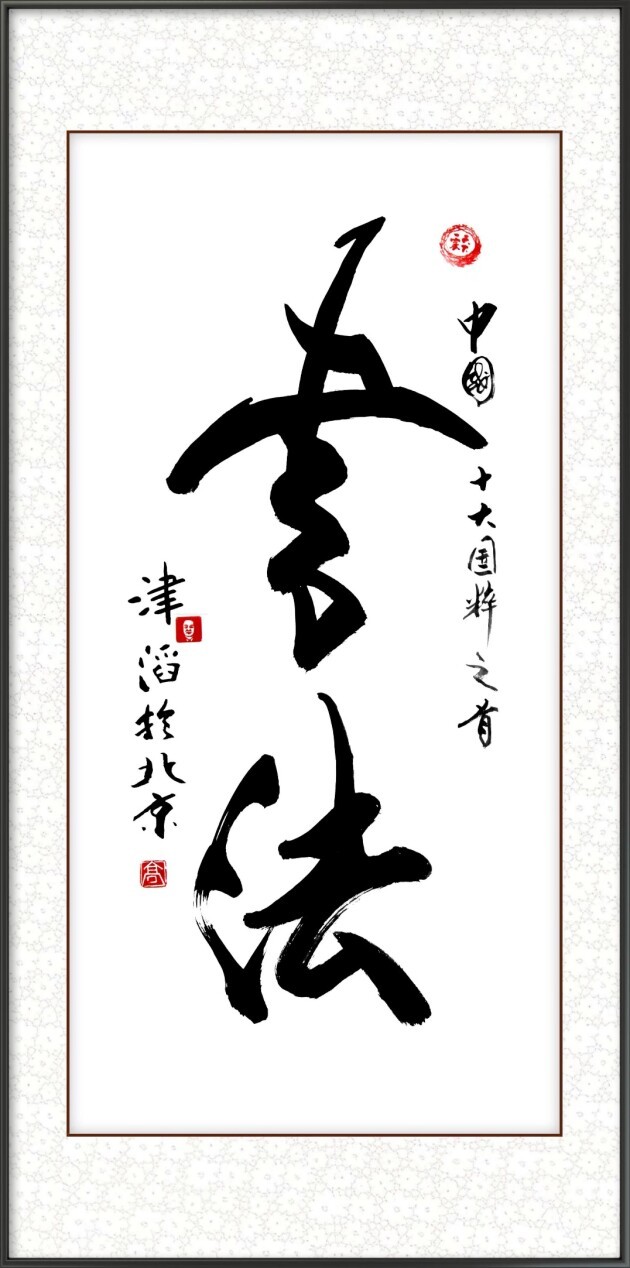 中国 十大国粹之首
書法
津滔於北京
高